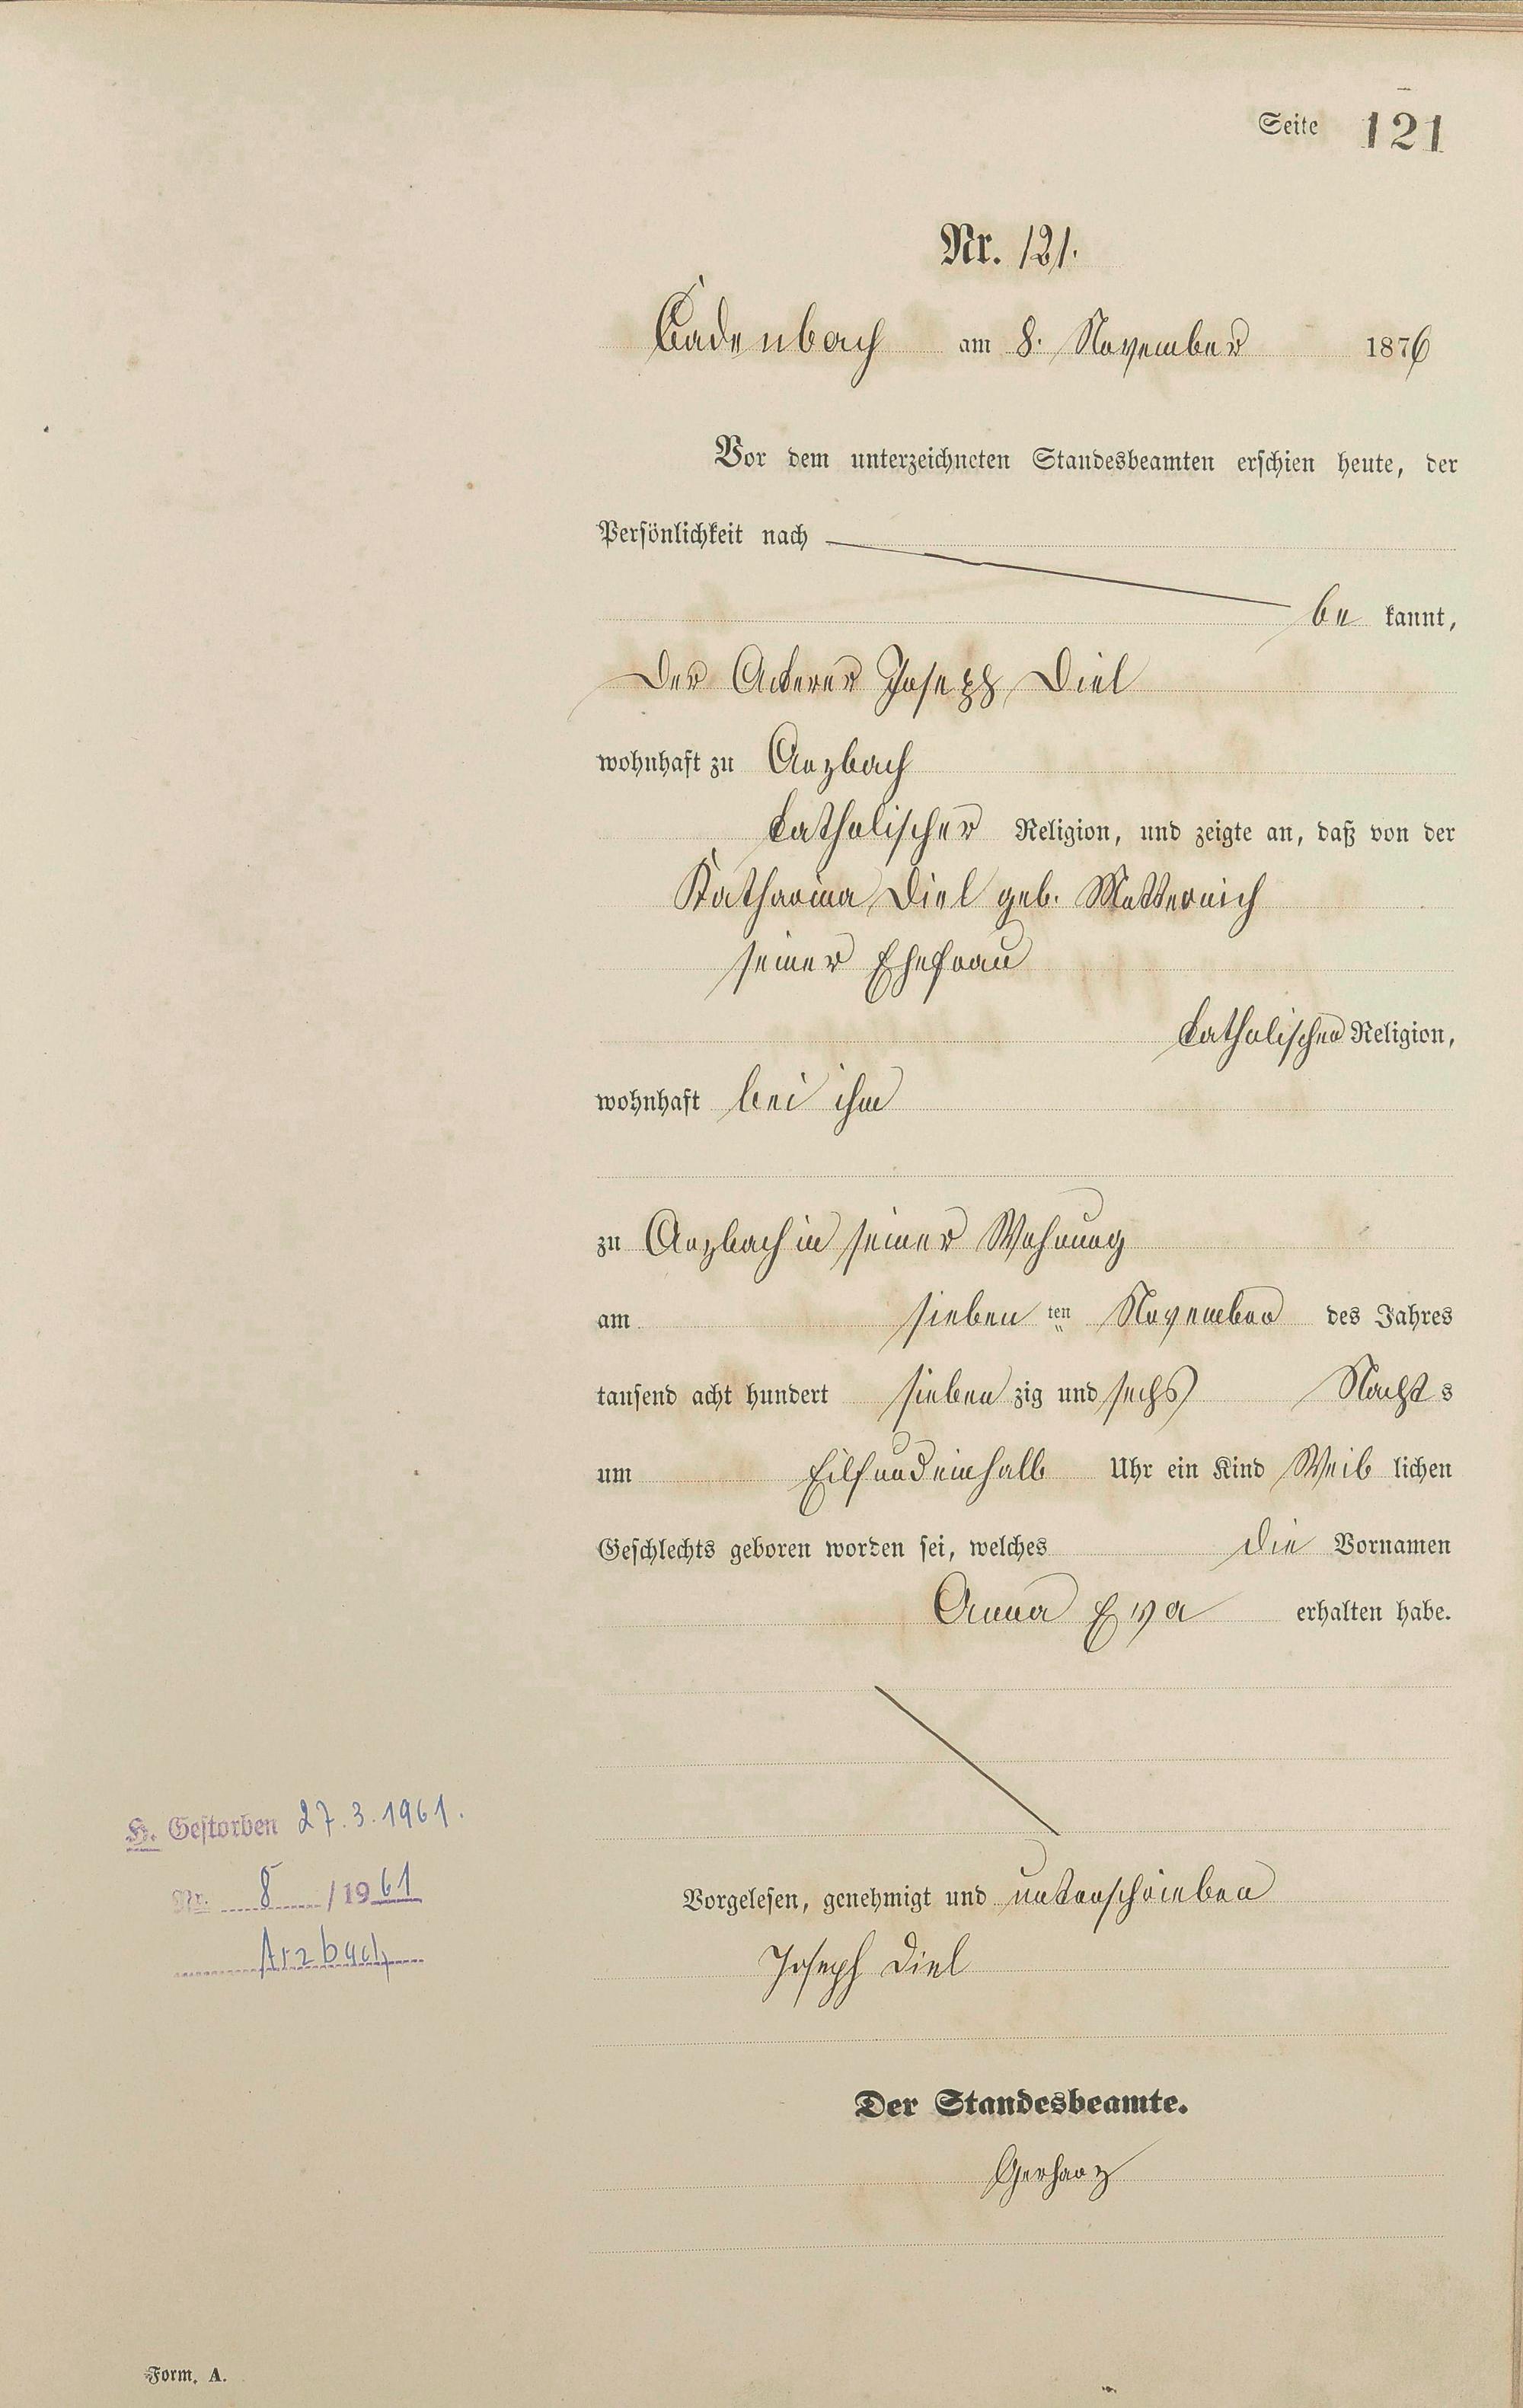 Seite 121
Nr. 121.
Cadenbach am 8. November 1876
Vor dem unterzeichneten Standesbeamten erschien heute, der
Persönlichkeit nach
be kannt,
der Ackerer Joseph Diel
wohnhaft zu Arzbach
katholischer Religion, und zeigte an, daß von der
Katharina Diel geb. Metternich
seiner Ehefrau
katholischer Religion,
wohnhaft bei ihm
zu Arzbach in seiner Wohnung
am sieben ten November des Jahres
tausend acht hundert sieben zig und sechs Nacht s
um Eilfundeinhalb Uhr ein Kind Weib lichen
Geschlechts geboren worden sei, welches die Vornamen
Anna Eva erhalten habe.
H. Gestorben 27.3.1961.
Nr. 8 /1961
Arzbach
Vorgelesen, genehmigt und unterschrieben
Joseph Diel
Der Standesbeamte.
Gerharz
Form. A.